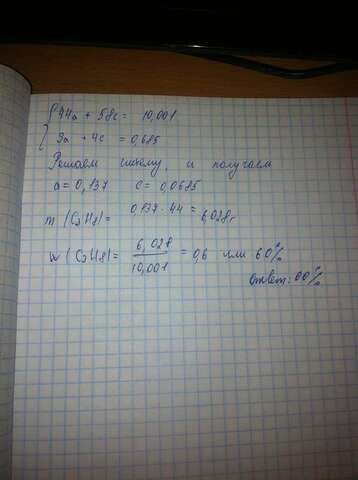 44a + 58c = 10,001
3a + 4c = 0,685
Решаем систему, и получаем
a = 0,137 c = 0,0685
m (C3H8) = 0,137 · 44 = 6,028г
w (C3H8) = 6,028 / 10,001 = 0,6 или 60%
ответ: 60%